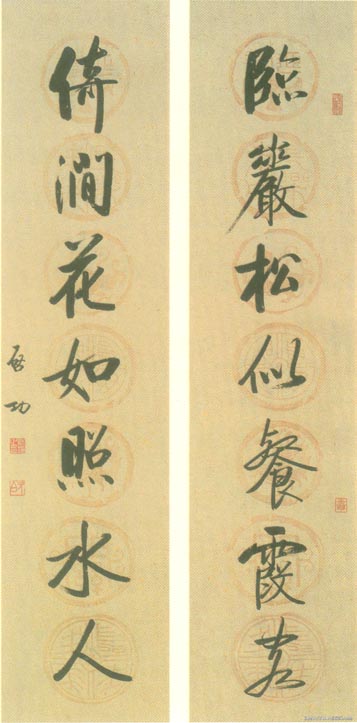 臨巖松似餐霞者
倚澗花如照水人
启功